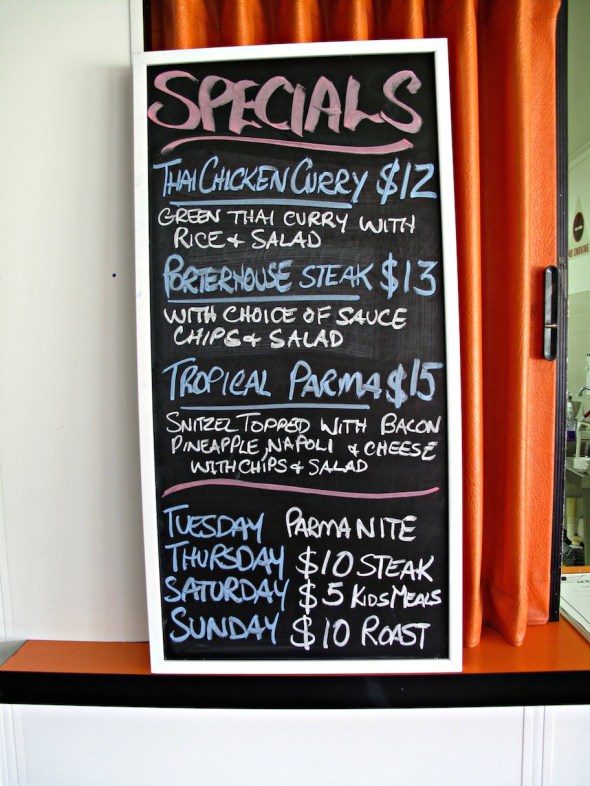 SPECIALS
THAI CHICKEN CURRY $12
GREEN THAI CURRY WITH
RICE & SALAD
PORTERHOUSE STEAK $13
WITH CHOICE OF SAUCE
CHIPS & SALAD
TROPICAL PARMA $15
SNITZEL TOPPED WITH BACON
PINEAPPLE, NAPOLI & CHEESE
WITH CHIPS & SALAD
TUESDAY PARMA NITE
THURSDAY $10 STEAK
SATURDAY $5 KIDS MEALS
SUNDAY $10 ROAST